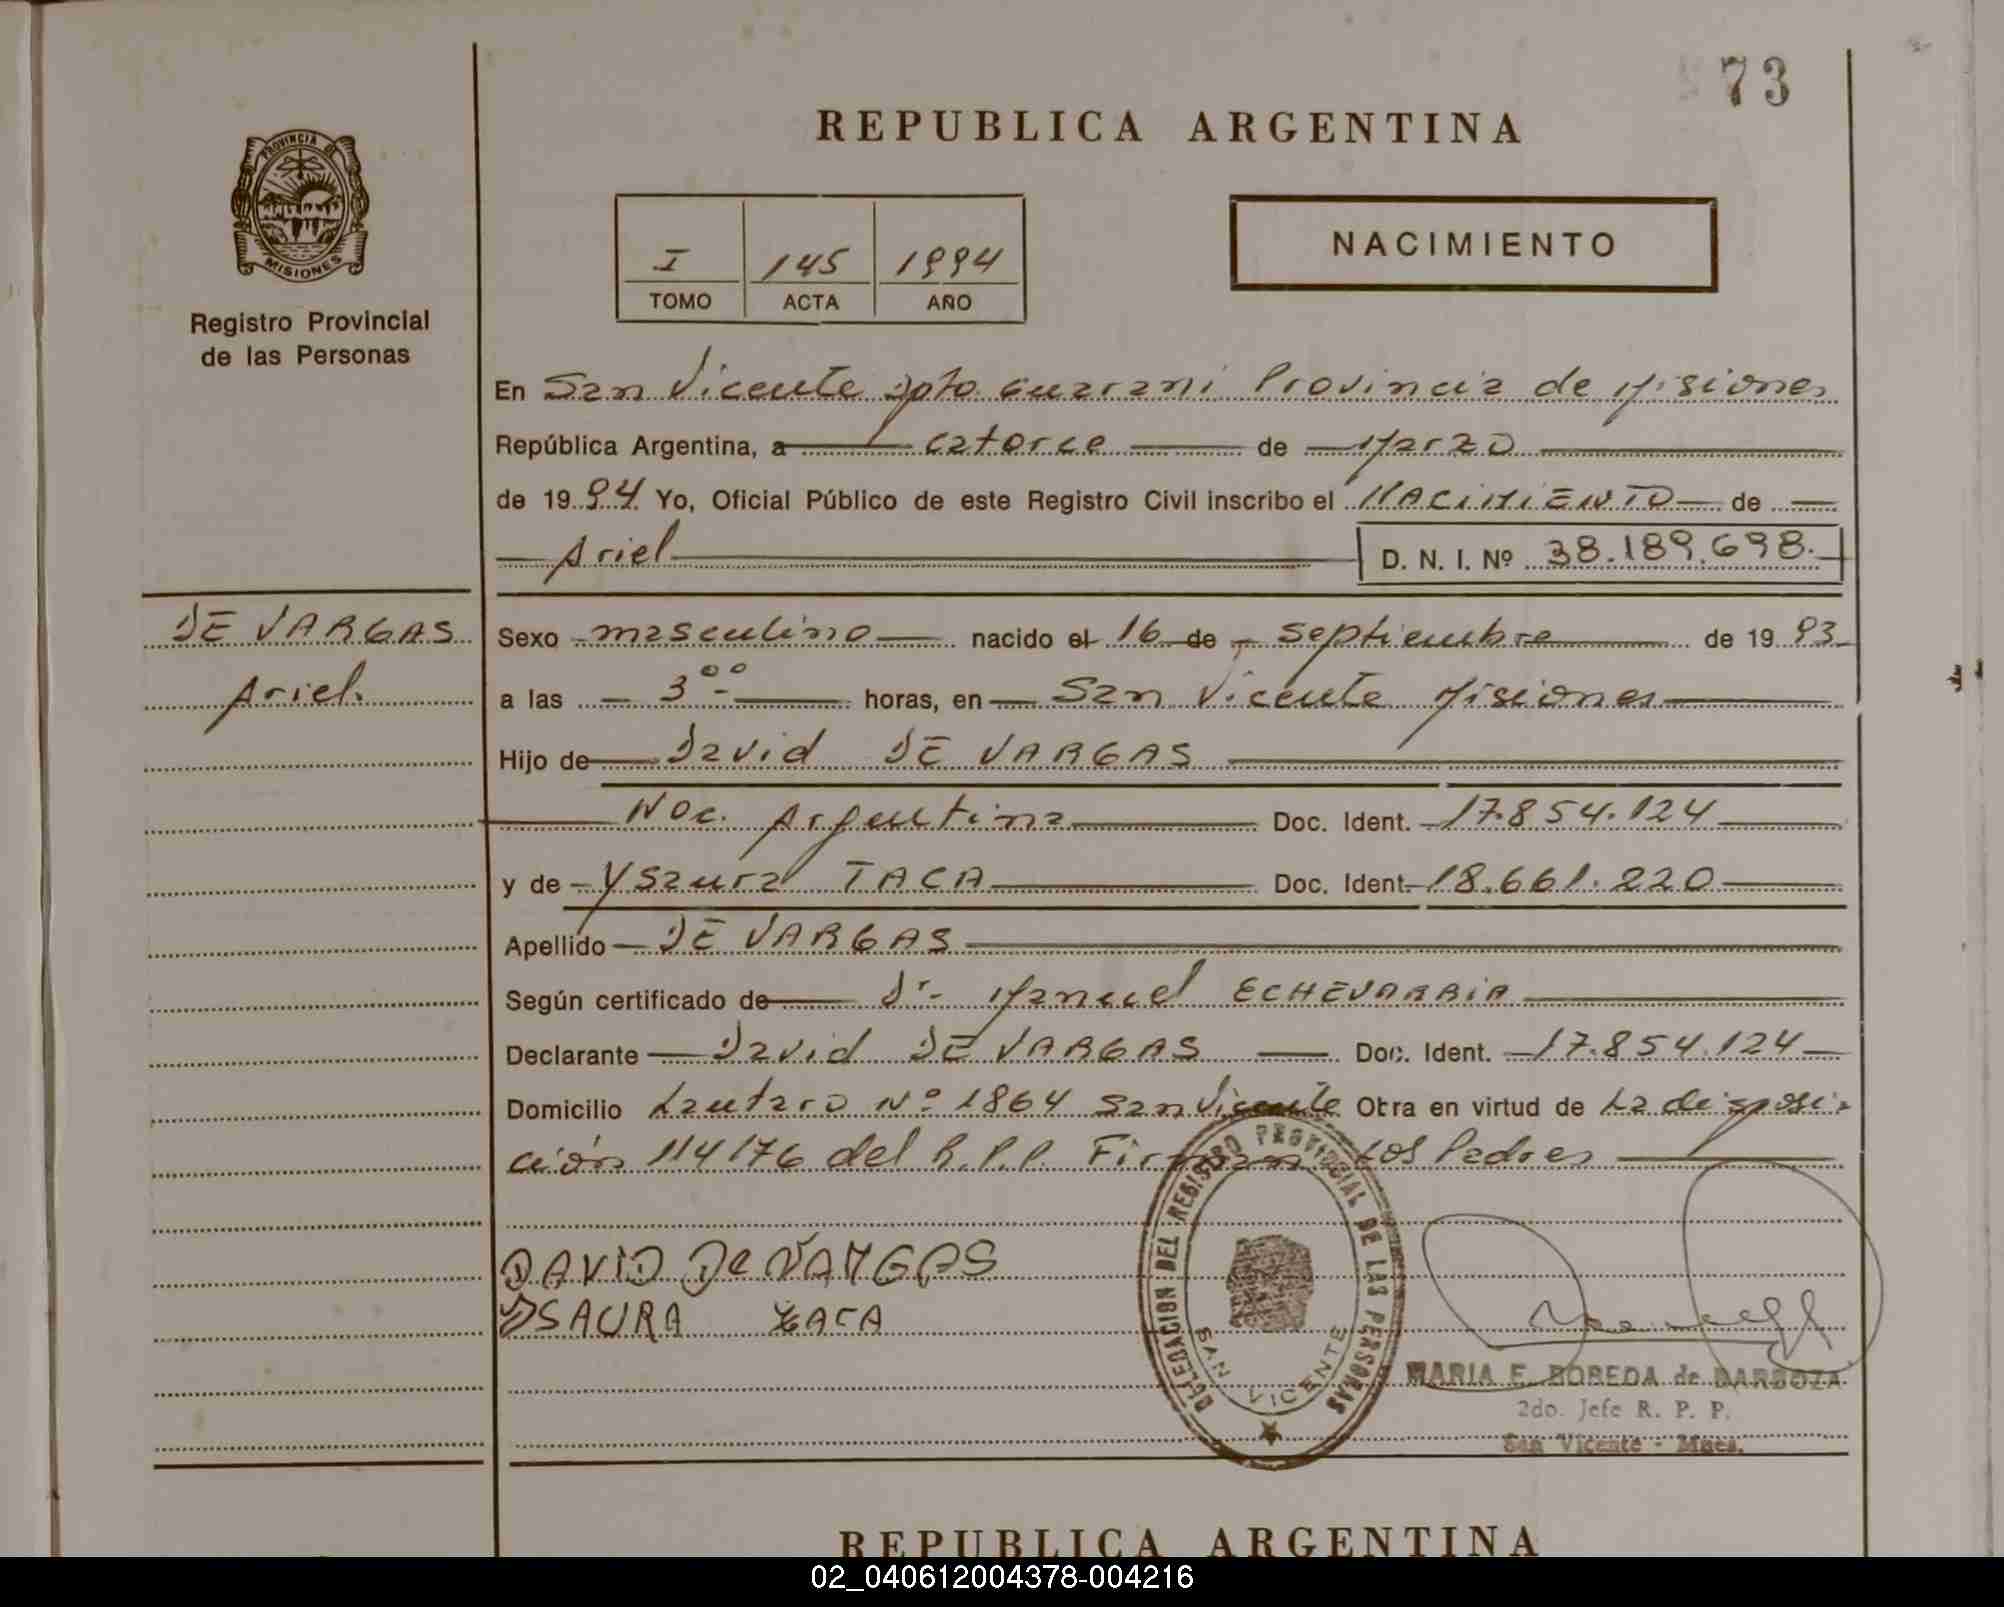 73
REPUBLICA ARGENTINA
PROVINCIA DE
MISIONES
Registro Provincial
de las Personas
I 145 1994
TOMO ACTA AÑO
NACIMIENTO
En San Vicente Dpto Guarani Provincia de Misiones
República Argentina, a catorce de Marzo
de 1994 Yo, Oficial Público de este Registro Civil inscribo el NACIMIENTO de
Ariel D. N. I. Nº 38.189.698.
DE VARGAS
Ariel.
Sexo masculino nacido el 16 de Septiembre de 1993
a las 3°° horas, en San Vicente Misiones
Hijo de David DE VARGAS
Nac. Argentina Doc. Ident. 17.854.124
y de Ysaura TACA Doc. Ident. 18.661.220
Apellido DE VARGAS
Según certificado de Dr. Manuel ECHEVARRIA
Declarante David DE VARGAS Doc. Ident. 17.854.124
Domicilio Lautaro Nº 1864 San Vicente Obra en virtud de La disposi-
ción 114/76 del R.P.P. Firman Los Padres
DAVID De VARGAS
YSAURA TACA
DELEGACION DEL REGISTRO PROVINCIAL DE LAS PERSONAS
SAN VICENTE
MARIA E. BOBEDA de BARBOZA
2do. Jefe R. P. P.
San Vicente - Mnes.
REPUBLICA ARGENTINA
02_040612004378-004216